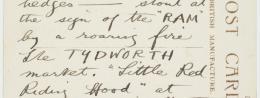 hedges — stout at
the sign of the "RAM"
by a roaring fire
the TYDWORTH
market. "Little Red
Riding Hood" at
POST CARD
BRITISH MANUFACTURE